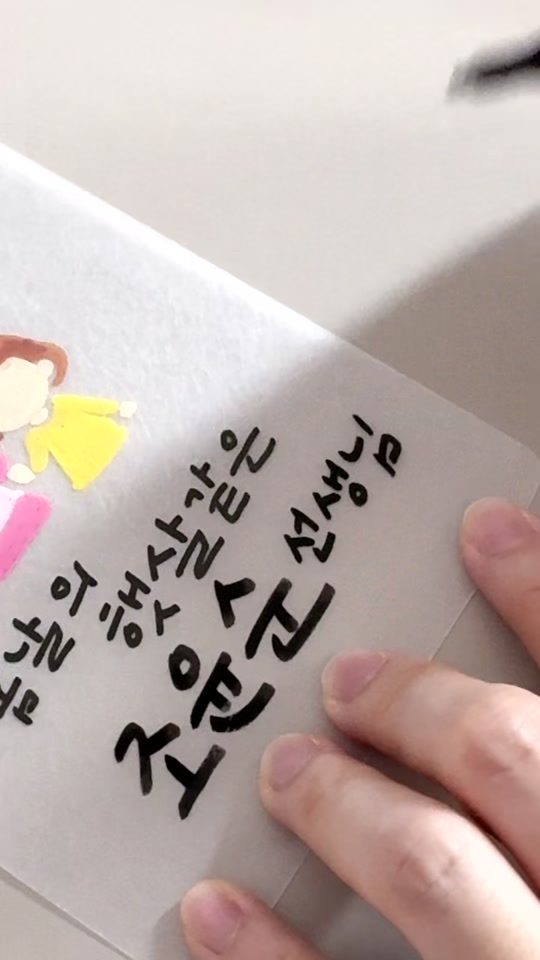 봄날의 햇살같은
조윤순 선생님